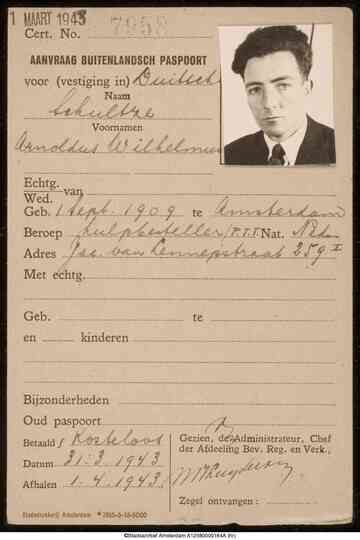 1 MAART 1943
Cert. No. 7958
AANVRAAG BUITENLANDSCH PASPOORT
voor (vestiging in) Duitschl
Naam
Schultze
Voornamen
Arnoldus Wilhelmus
Echtg.
Wed. van
Geb. 1 Sept. 1909 te Amsterdam
Beroep hulpbesteller P.T.T. Nat. Ned.
Adres Jac. van Lennepstraat 259 II
Met echtg.
Geb. te
en kinderen
Bijzonderheden
Oud paspoort
Betaald f Kosteloos
Datum 31-3 1943
Afhalen 1-4 1943
Gezien, de Administrateur, Chef
der Afdeeling Bev. Reg. en Verk.,
Zegel ontvangen :
Stadsdrukkerij Amsterdam
©Stadsarchief Amsterdam A12680000164A (hr)